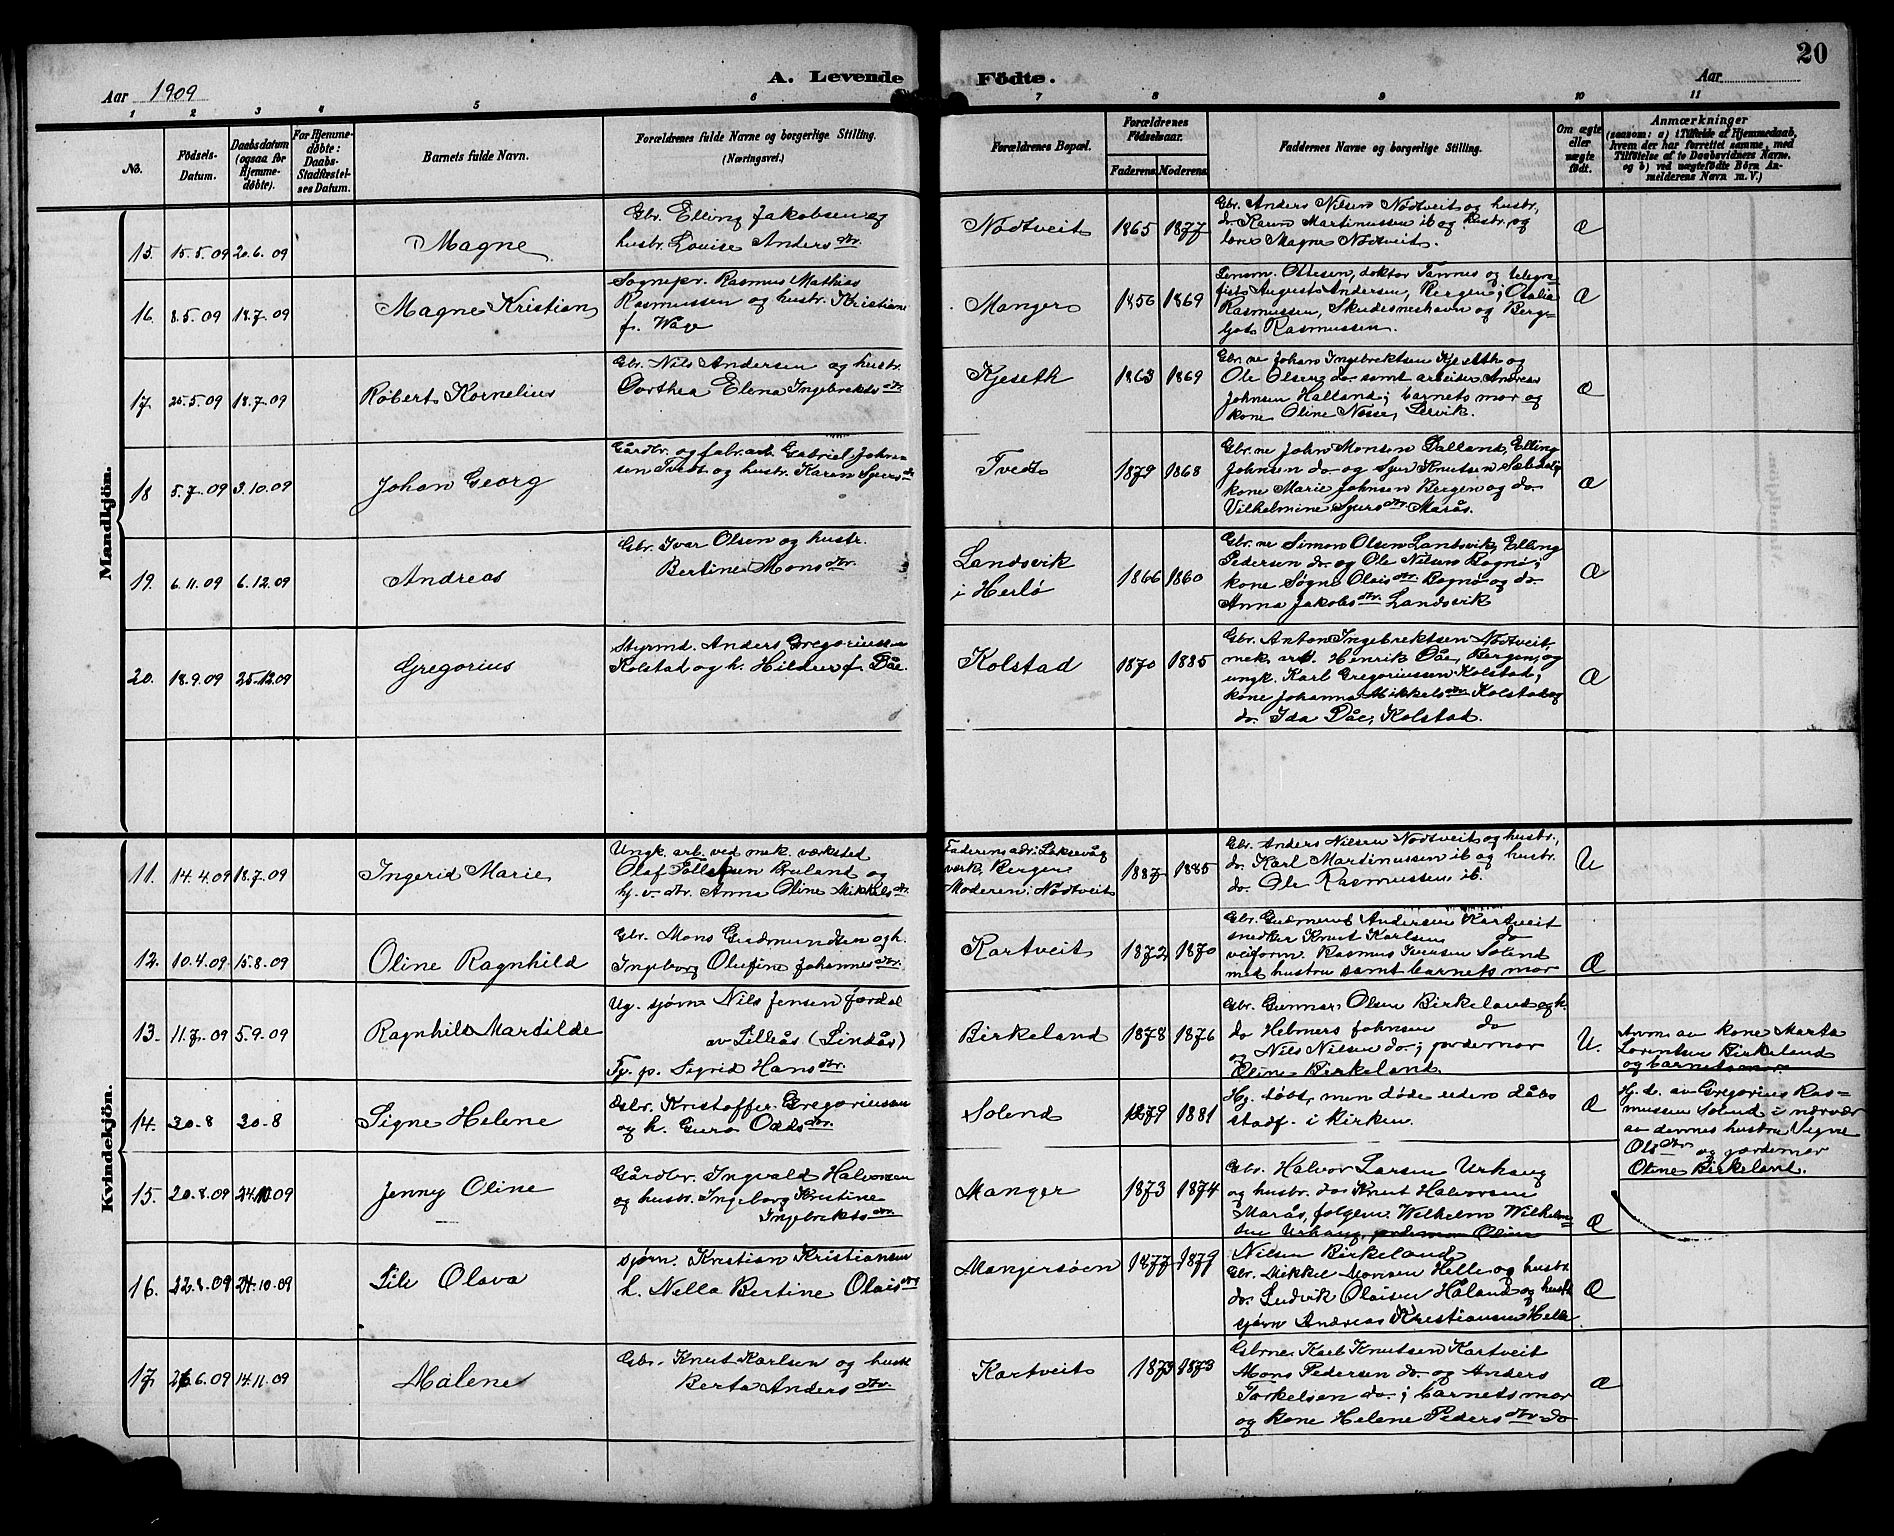 20
A. Levende Födte.
Aar 1909
Aar
1 2 3 4 5 6 7 8 9 10 11
No.
Födsels-Datum.
Daabsdatum (ogsaa for Hjemmedøbte).
For Hjemmedøbte: Daabs-Stadfæstelses Datum.
Barnets fulde Navn.
Forældrenes fulde Navne og borgerlige Stilling. (Næringsvei.)
Forældrenes Bopæl.
Forældrenes Födselsaar.
Faderens Moderens
Faddernes Navne og borgerlige Stilling.
Om ægte eller uægte født.
Anmærkninger
(saasom: a) i Tilfælde af Hjemmedaab, hvem der har forrettet samme, med Tilföielse af to Daabsvidners Navne. og b) ved uægtefødte Börn Anmelderens Navn m. V.)
Mandkjön.
15. 15.5.09 20.6.09 Magne
Gbr. Elling Jakobsen og
hustr. Louise Andersdtr.
Nodtveit 1865 1877
Gbr. Anders Nilsen Nodtveit og hustr.,
do Karl Martinussen ib og hustr. og
Magne Nodtveit.
Æ
16. 8.5.09 18.7.09 Magne Kristian
Sognepr. Rasmus Mathias
Rasmussen og hustr. Kristiane
f. Wage
Manger 1856 1869
Lensm. Ottesen, doktor Tannes og telegra-
fist Augusta Andersen, Bergen; Otalia
Rasmussen, Skudesneshavn og Berg-
ljot Rasmussen.
Æ
17. 25.5.09 18.7.09 Robert Kornelius
Gbr. Nils Andersen og hustr.
Dorthea Elena Ingebriktsdtr
Kjeseth 1863 1869
Gbr.ne Johan Ingebriktsen Kjeseth og
Ole Olsen do. samt arbeider Andreas
Johnsen Halland; barnets mor og
kone Oline Nesse, Lervik.
Æ
18 5.7.09 3.10.09 Johan Georg
Gårdbr. og fabr.arb. Gabriel John-
sen Tvedt og hustr. Karen Sjursdtr
Tvedt 1879 1868
Gbr.ne John Monsen Dalland, Elling
Johnsen do. og Sjur Knutsen
kone Marie Johnsen Bergen og do.
Vilhelmine Sjursdtr. Marås.
Æ
19. 6.11.09 6.12.09 Andreas
Gbr. Ivar Olsen og hustr.
Bertine Monsdtr.
Landsvik
i Herlö 1866 1860
Gbr.ne Simon Olsen Landsvik, Elling
Pedersen do. og Ole Nilsen Bognø;
kone Søgne Olaisdtr. Bognø og do.
Anna Jakobsdtr. Landsvik
Æ
20. 18.9.09 25.12.09 Gregorius
Styrmd. Anders Gregoriussen
Kolstad og h. Hildur f. Dåe.
Kolstad 1870 1885
Gbr. Anton Ingebrektsen Nodtveit,
mek. arb. Henrik Dåe, Bergen, og
ungk. Karl Gregoriussen Kolstad;
kone Johanna Mikkelsdtr. Kolstad og
do. Ida Dåe, Kolstad.
Æ
Kvindekjön.
11. 14.4.09 18.7.09 Ingerid Marie
Ungk. arb. ved mek. værksted
Olaf Bruland og
Anna Oline Mikkelsdtr.
Faderens adr: Laksevåg
verk, Bergen
Moderen: Nodtveit 1887 1885
Gbr. Anders Nilsen Nodtveit og hustr.,
do. Karl Martinussen ib og hustr.
do. Ole Rasmussen ib.
U
12. 10.4.09 15.8.09 Oline Ragnhild
Gbr. Mons Gudmundsen og h.
Ingeborg Olufine Johannesdtr.
Kartveit 1872 1870
Gbr. Gudmund Andersen Kartveit
snedker Knut Karlsen do
veiform. Rasmus Iversen Solend
med hustru samt barnets mor
Æ
13. 11.7.09 5.9.09 Ragnhild Martilde
Ug. sjøm Nils Jensen Jordal
av Lilleås (Lindås)
Tj. p. Sigrid Hansdtr.
Birkeland 1878 1876
Gbr. Gunnar Olsen Birkeland og h.
do Helmers Johnsen do
og Nils Nilsen do.; jordemor
Oline Birkeland.
U.
Anm. av kone Marta
Lorentsen Birkeland
og barnets mor.
14. 30.8 30.8 Signe Helene
Gbr. Kristoffer Gregoriussen
og h. Guro Oddsdtr.
Solend 1879 1881
Hj. døbt, men døde uden dåbs
stadf. i kirken.
Æ
Hj. d. av Gregorius Ras-
mussen Solend i nærvær
av dennes hustru Signe
Olsdtr og jordemor
Oline Birkeland.
15. 20.8.09 24.10.09 Jenny Oline
Gårdbr. Ingvald Halvorsen
og hustr. Ingeborg Kristine
Ingebriktsdtr.
Manger 1873 1874
Gbr. Halvor Larsen Urhaug
og hustr. do Knut Halvorsen
Marås, følgem. Wilhelm Wilhelm-
sen Urhaug, jordemor Oline
Nilsen Birkeland
Æ
16. 22.8.09 24.10.09 Lile Olava
sjøm. Kristian Kristiansen
h. Nella Bertine Olaisdtr
Mangersøen 1877 1879
Gbr. Mikkel Monsen Helle og hustr
do. Ludvik Olaisen Håland og hustr
sjøm Andreas Kristiansen Helle.
Æ
17. 26.6.09 14.11.09 Malene
Gbr. Knut Karlsen og hustr
Berta Andersdtr.
Kartveit 1873 1873
Gbrne. Karl Knutsen Kartveit
Mons Pedersen do. og Anders
Torkelsen do.; barnets mor
og kone Helene Pedersdtr. do
Æ